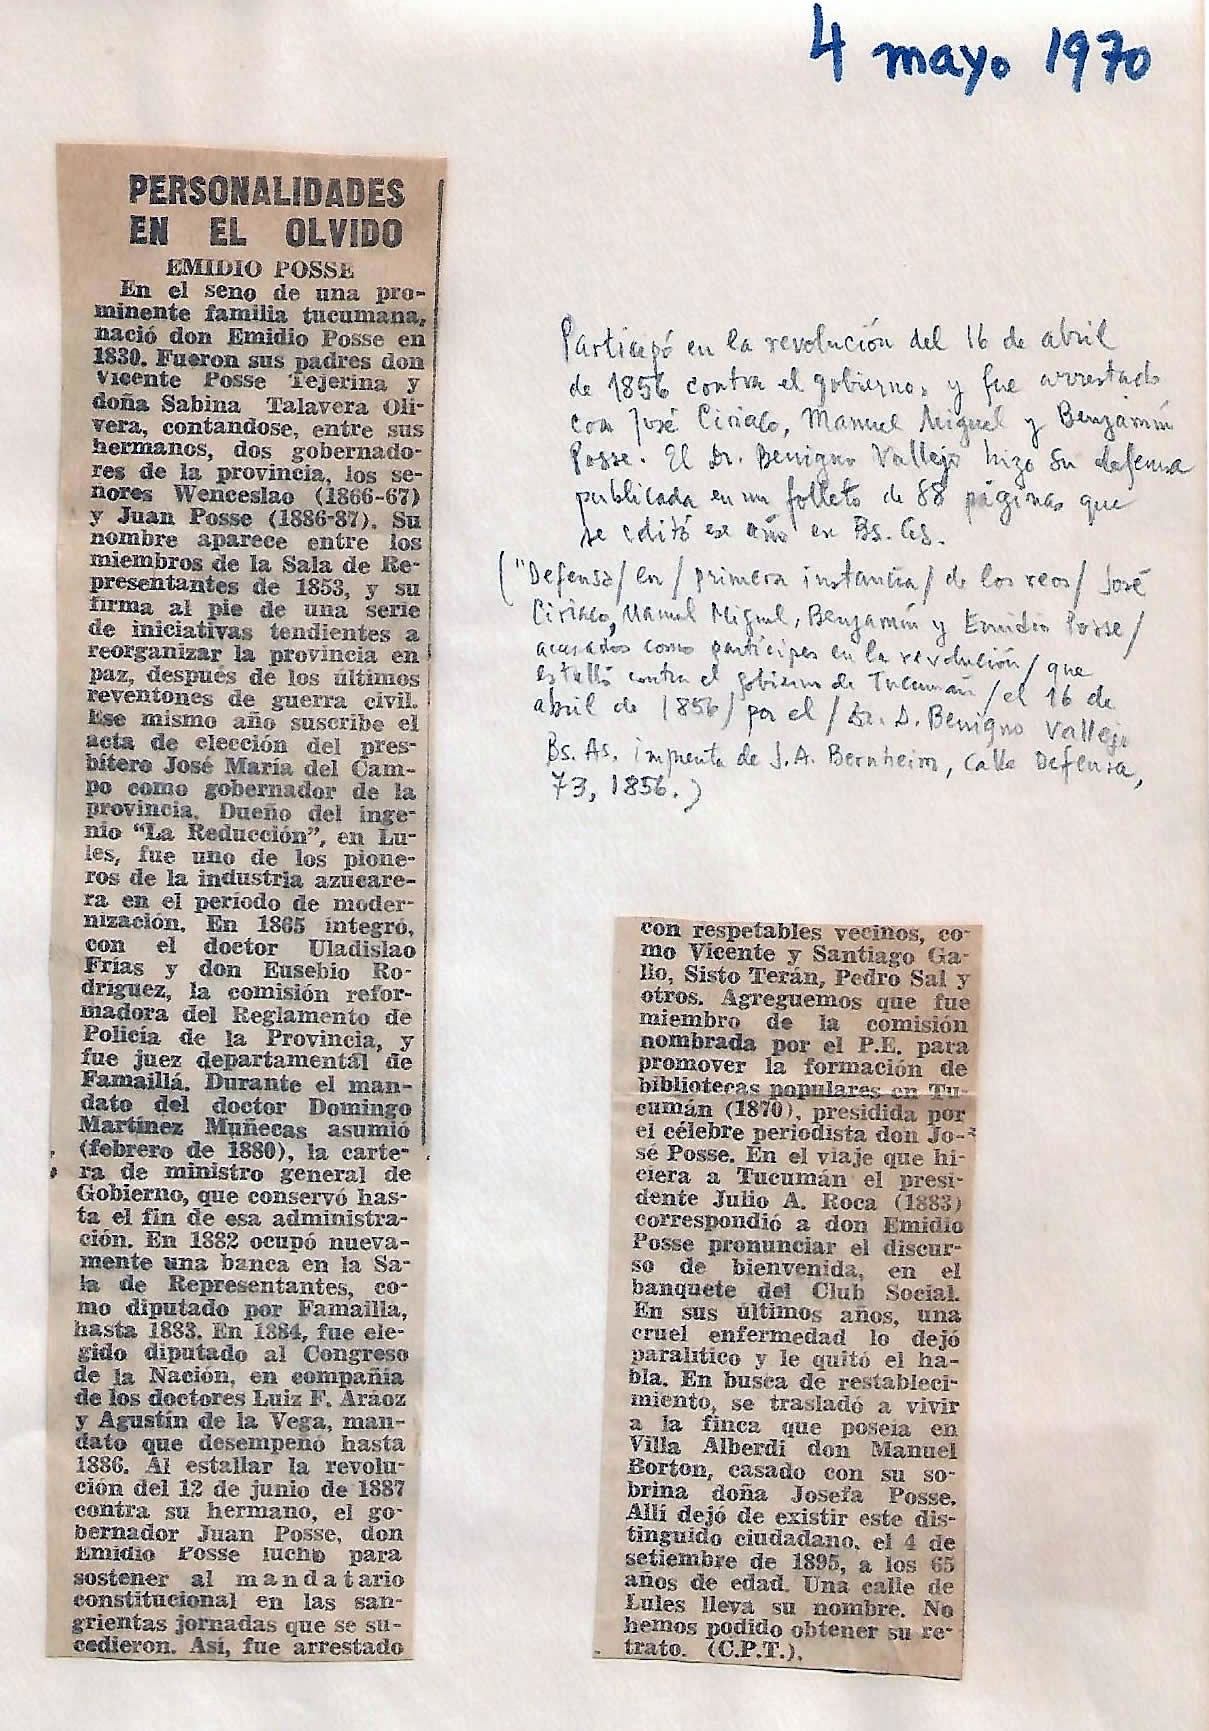 4 mayo 1970
PERSONALIDADES
EN EL OLVIDO
EMIDIO POSSE
En el seno de una pro-
minente familia tucumana,
nació don Emidio Posse en
1830. Fueron sus padres don
Vicente Posse Tejerina y
doña Sabina Talavera Oli-
vera, contándose, entre sus
hermanos, dos gobernado-
res de la provincia, los se-
ñores Wenceslao (1866-67)
y Juan Posse (1886-87). Su
nombre aparece entre los
miembros de la Sala de Re-
presentantes de 1853, y su
firma al pie de una serie
de iniciativas tendientes a
reorganizar la provincia en
paz, después de los últimos
reventones de guerra civil.
Ese mismo año suscribe el
acta de elección del pres-
bítero José María del Cam-
po como gobernador de la
provincia. Dueño del inge-
nio "La Reducción", en Lu-
les, fue uno de los pione-
ros de la industria azucare-
ra en el período de moder-
nización. En 1865 integró,
con el doctor Uladislao
Frías y don Eusebio Ro-
dríguez, la comisión refor-
madora del Reglamento de
Policía de la Provincia, y
fue juez departamental de
Famaillá. Durante el man-
dato del doctor Domingo
Martínez Muñecas asumió
(febrero de 1880), la carte-
ra de ministro general de
Gobierno, que conservó has-
ta el fin de esa administra-
ción. En 1882 ocupó nueva-
mente una banca en la Sa-
la de Representantes, co-
mo diputado por Famaillá,
hasta 1883. En 1884, fue ele-
gido diputado al Congreso
de la Nación, en compañía
de los doctores Luiz F. Aráoz
y Agustín de la Vega, man-
dato que desempeñó hasta
1886. Al estallar la revolu-
ción del 12 de junio de 1887
contra su hermano, el go-
bernador Juan Posse, don
Emidio Posse luchó para
sostener al mandatario
constitucional en las san-
grientas jornadas que se su-
cedieron. Así, fue arrestado
Participó en la revolución del 16 de abril
de 1856 contra el gobierno, y fue arrestado
con José Ciriaco, Manuel Miguel y Benjamín
Posse. El Dr. Benigno Vallejo hizo su defensa
publicada en un folleto de 88 páginas que
se editó ese año en Bs. As.
("Defensa/en/primera instancia/de los reos/José
Ciriaco, Manuel Miguel, Benjamín y Emidio Posse/
acusados como partícipes en la revolución/que
estalló contra el gobierno de Tucumán/el 16 de
abril de 1856/por el/Dr. D. Benigno Vallejo
Bs. As. imprenta de J.A. Bernheim, calle Defensa,
73, 1856.)
con respetables vecinos, co-
mo Vicente y Santiago Ga-
llo, Sisto Terán, Pedro Sal y
otros. Agreguemos que fue
miembro de la comisión
nombrada por el P.E. para
promover la formación de
bibliotecas populares en Tu-
cumán (1870), presidida por
el célebre periodista don Jo-
sé Posse. En el viaje que hi-
ciera a Tucumán el presi-
dente Julio A. Roca (1883)
correspondió a don Emidio
Posse pronunciar el discur-
so de bienvenida, en el
banquete del Club Social.
En sus últimos años, una
cruel enfermedad lo dejó
paralítico y le quitó el ha-
bla. En busca de restableci-
miento, se trasladó a vivir
a la finca que poseía en
Villa Alberdi don Manuel
Borton, casado con su so-
brina doña Josefa Posse.
Allí dejó de existir este dis-
tinguido ciudadano, el 4 de
setiembre de 1895, a los 65
años de edad. Una calle de
Lules lleva su nombre. No
hemos podido obtener su re-
trato. (C.P.T.).